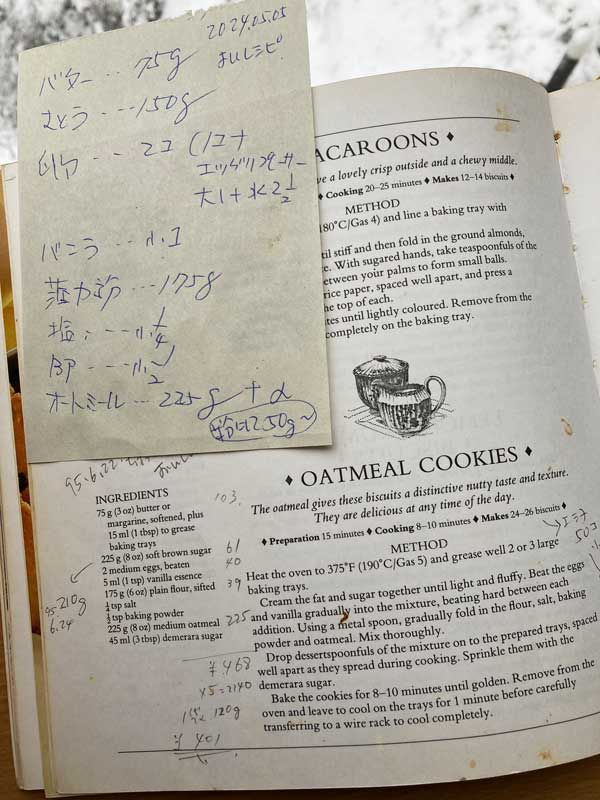 2024.05.05
バター…75g
さとう…150g
2コ(1コ+
エッグリプレーサー
大1+水2½
バニラ…小1
薄力粉…175g
塩…小¼
BP…小½
オートミール…225g+α
250g~
ACAROONS ♦
ve a lovely crisp outside and a chewy middle.
♦ Cooking 20–25 minutes ♦ Makes 12–14 biscuits ♦
METHOD
(180°C/Gas 4) and line a baking tray with
til stiff and then fold in the ground almonds,
e. With sugared hands, take teaspoonfuls of the
between your palms to form small balls.
rice paper, spaced well apart, and press a
the top of each.
tes until lightly coloured. Remove from the
completely on the baking tray.
♦ OATMEAL COOKIES ♦
The oatmeal gives these biscuits a distinctive nutty taste and texture.
They are delicious at any time of the day.
♦ Preparation 15 minutes ♦ Cooking 8–10 minutes ♦ Makes 24–26 biscuits ♦
95.6.22
INGREDIENTS
75 g (3 oz) butter or
margarine, softened, plus
15 ml (1 tbsp) to grease
baking trays
225 g (8 oz) soft brown sugar
2 medium eggs, beaten
5 ml (1 tsp) vanilla essence
175 g (6 oz) plain flour, sifted
¼ tsp salt
½ tsp baking powder
225 g (8 oz) medium oatmeal
45 ml (3 tbsp) demerara sugar
103
61
40
39
225
210g
95
6.24
¥468
×5=2140
120g
¥401
METHOD
Heat the oven to 375°F (190°C/Gas 5) and grease well 2 or 3 large
baking trays.
Cream the fat and sugar together until light and fluffy. Beat the eggs
and vanilla gradually into the mixture, beating hard between each
addition. Using a metal spoon, gradually fold in the flour, salt, baking
powder and oatmeal. Mix thoroughly.
Drop dessertspoonfuls of the mixture on to the prepared trays, spaced
well apart as they spread during cooking. Sprinkle them with the
demerara sugar.
Bake the cookies for 8–10 minutes until golden. Remove from the
oven and leave to cool on the trays for 1 minute before carefully
transferring to a wire rack to cool completely.